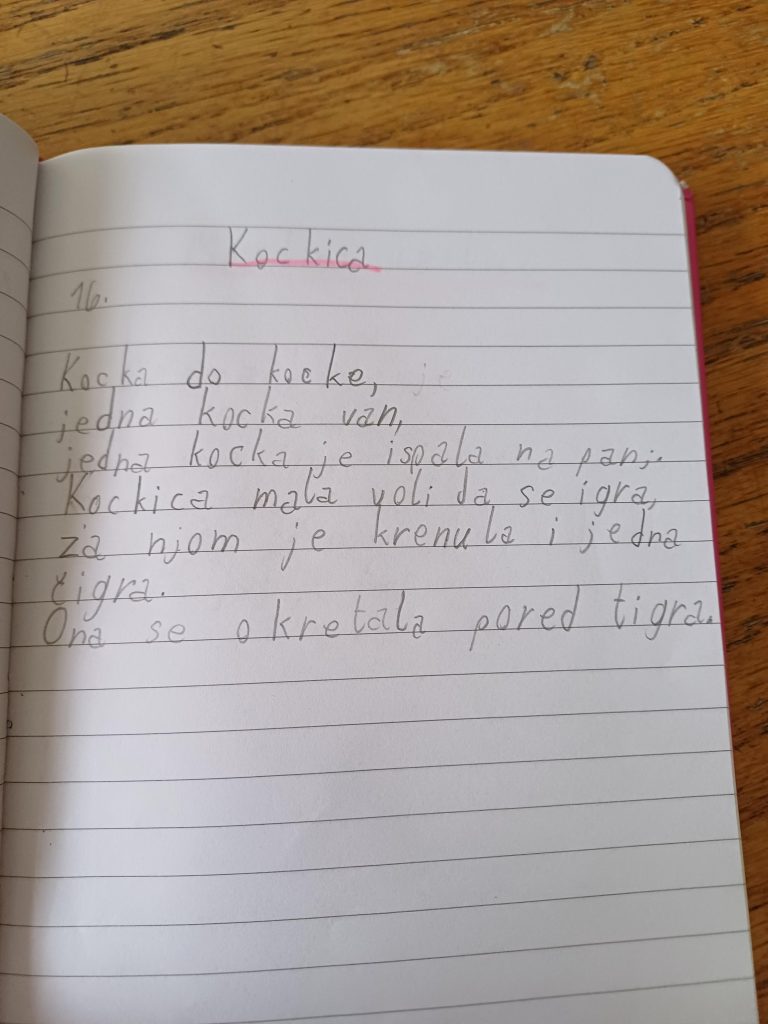 Kockica
16.
Kocka do kocke, je
jedna kocka van,
jedna kocka je ispala na panj.
Kockica mala voli da se igra,
za njom je krenula i jedna
čigra.
Ona se okretala pored tigra.